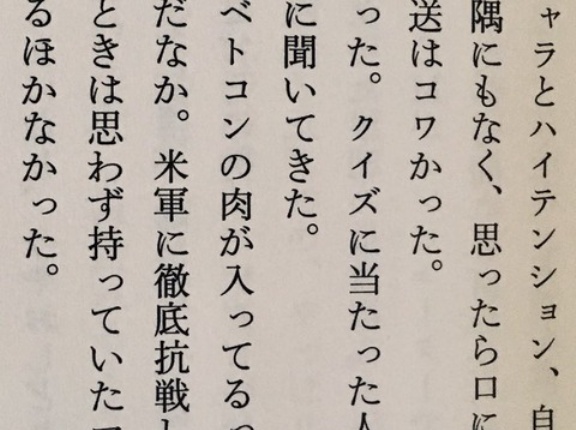 ャラとハイテンション、自
隅にもなく、思ったら口に
送はコワかった。
った。クイズに当たった人
に聞いてきた。
ベトコンの肉が入ってるっ
だなか。米軍に徹底抗戦し
ときは思わず持っていた
るほかなかった。